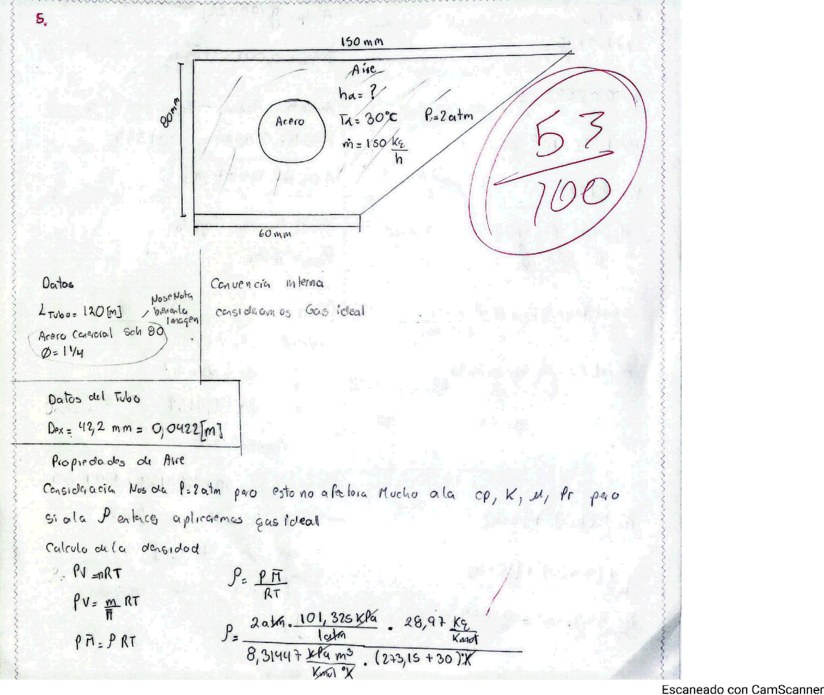 5.
150 mm
80mm
Aire
ha = ?
Ta = 30°C
P = 2atm
ṁ = 150 kg/h
Acero
60 mm
53/100
Datos
L Tubo = 120 [m]
Nose Nota
bien la
Imagen
Acero Comercial Sch 80
Ø = 1 1/4
Convencia interna
consideramos Gas ideal
Datos del Tubo
Dex = 42,2 mm = 0,0422 [m]
Propiedades de Aire
Consideracia Nos da P=2atm pero esto no afectara Mucho a la cp, K, μ, Pr pero
si a la ρ entoces aplicaremos gas ideal
Calculo de la densidad
PV = nRT
PV = m/M̄ RT
P M̄ = ρ RT
ρ = P M̄ / RT
ρ = 2 atm . 101,325 kPa / 1 atm . 28,97 kg/kmol
8,31447 kPa m³ / kmol °K . (273,15 + 30) °K
Escaneado con CamScanner